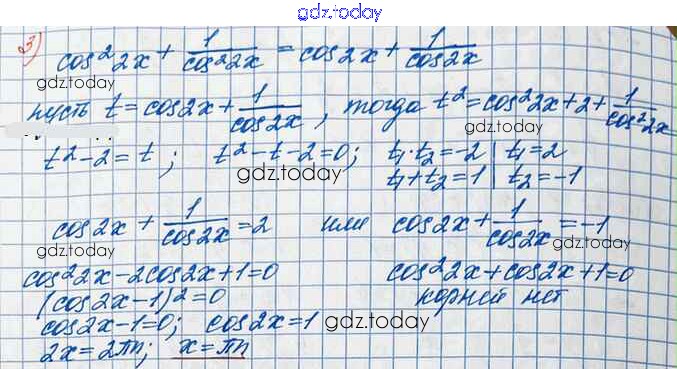 gdz.today
3) cos² 2x + 1/cos² 2x = cos2x + 1/cos2x
gdz.today
gdz.today
пусть t = cos2x + 1/cos2x, тогда t² = cos² 2x + 2 + 1/cos² 2x
gdz.today
t² - 2 = t; t² - t - 2 = 0; t₁·t₂ = -2 | t₁ = 2
t₁ + t₂ = 1 | t₂ = -1
gdz.today
cos2x + 1/cos2x = 2 или cos2x + 1/cos2x = -1
gdz.today
gdz.today
cos² 2x - 2cos2x + 1 = 0 cos² 2x + cos2x + 1 = 0
(cos2x - 1)² = 0 корней нет
cos2x - 1 = 0; cos2x = 1
gdz.today
2x = 2πn; x = πn